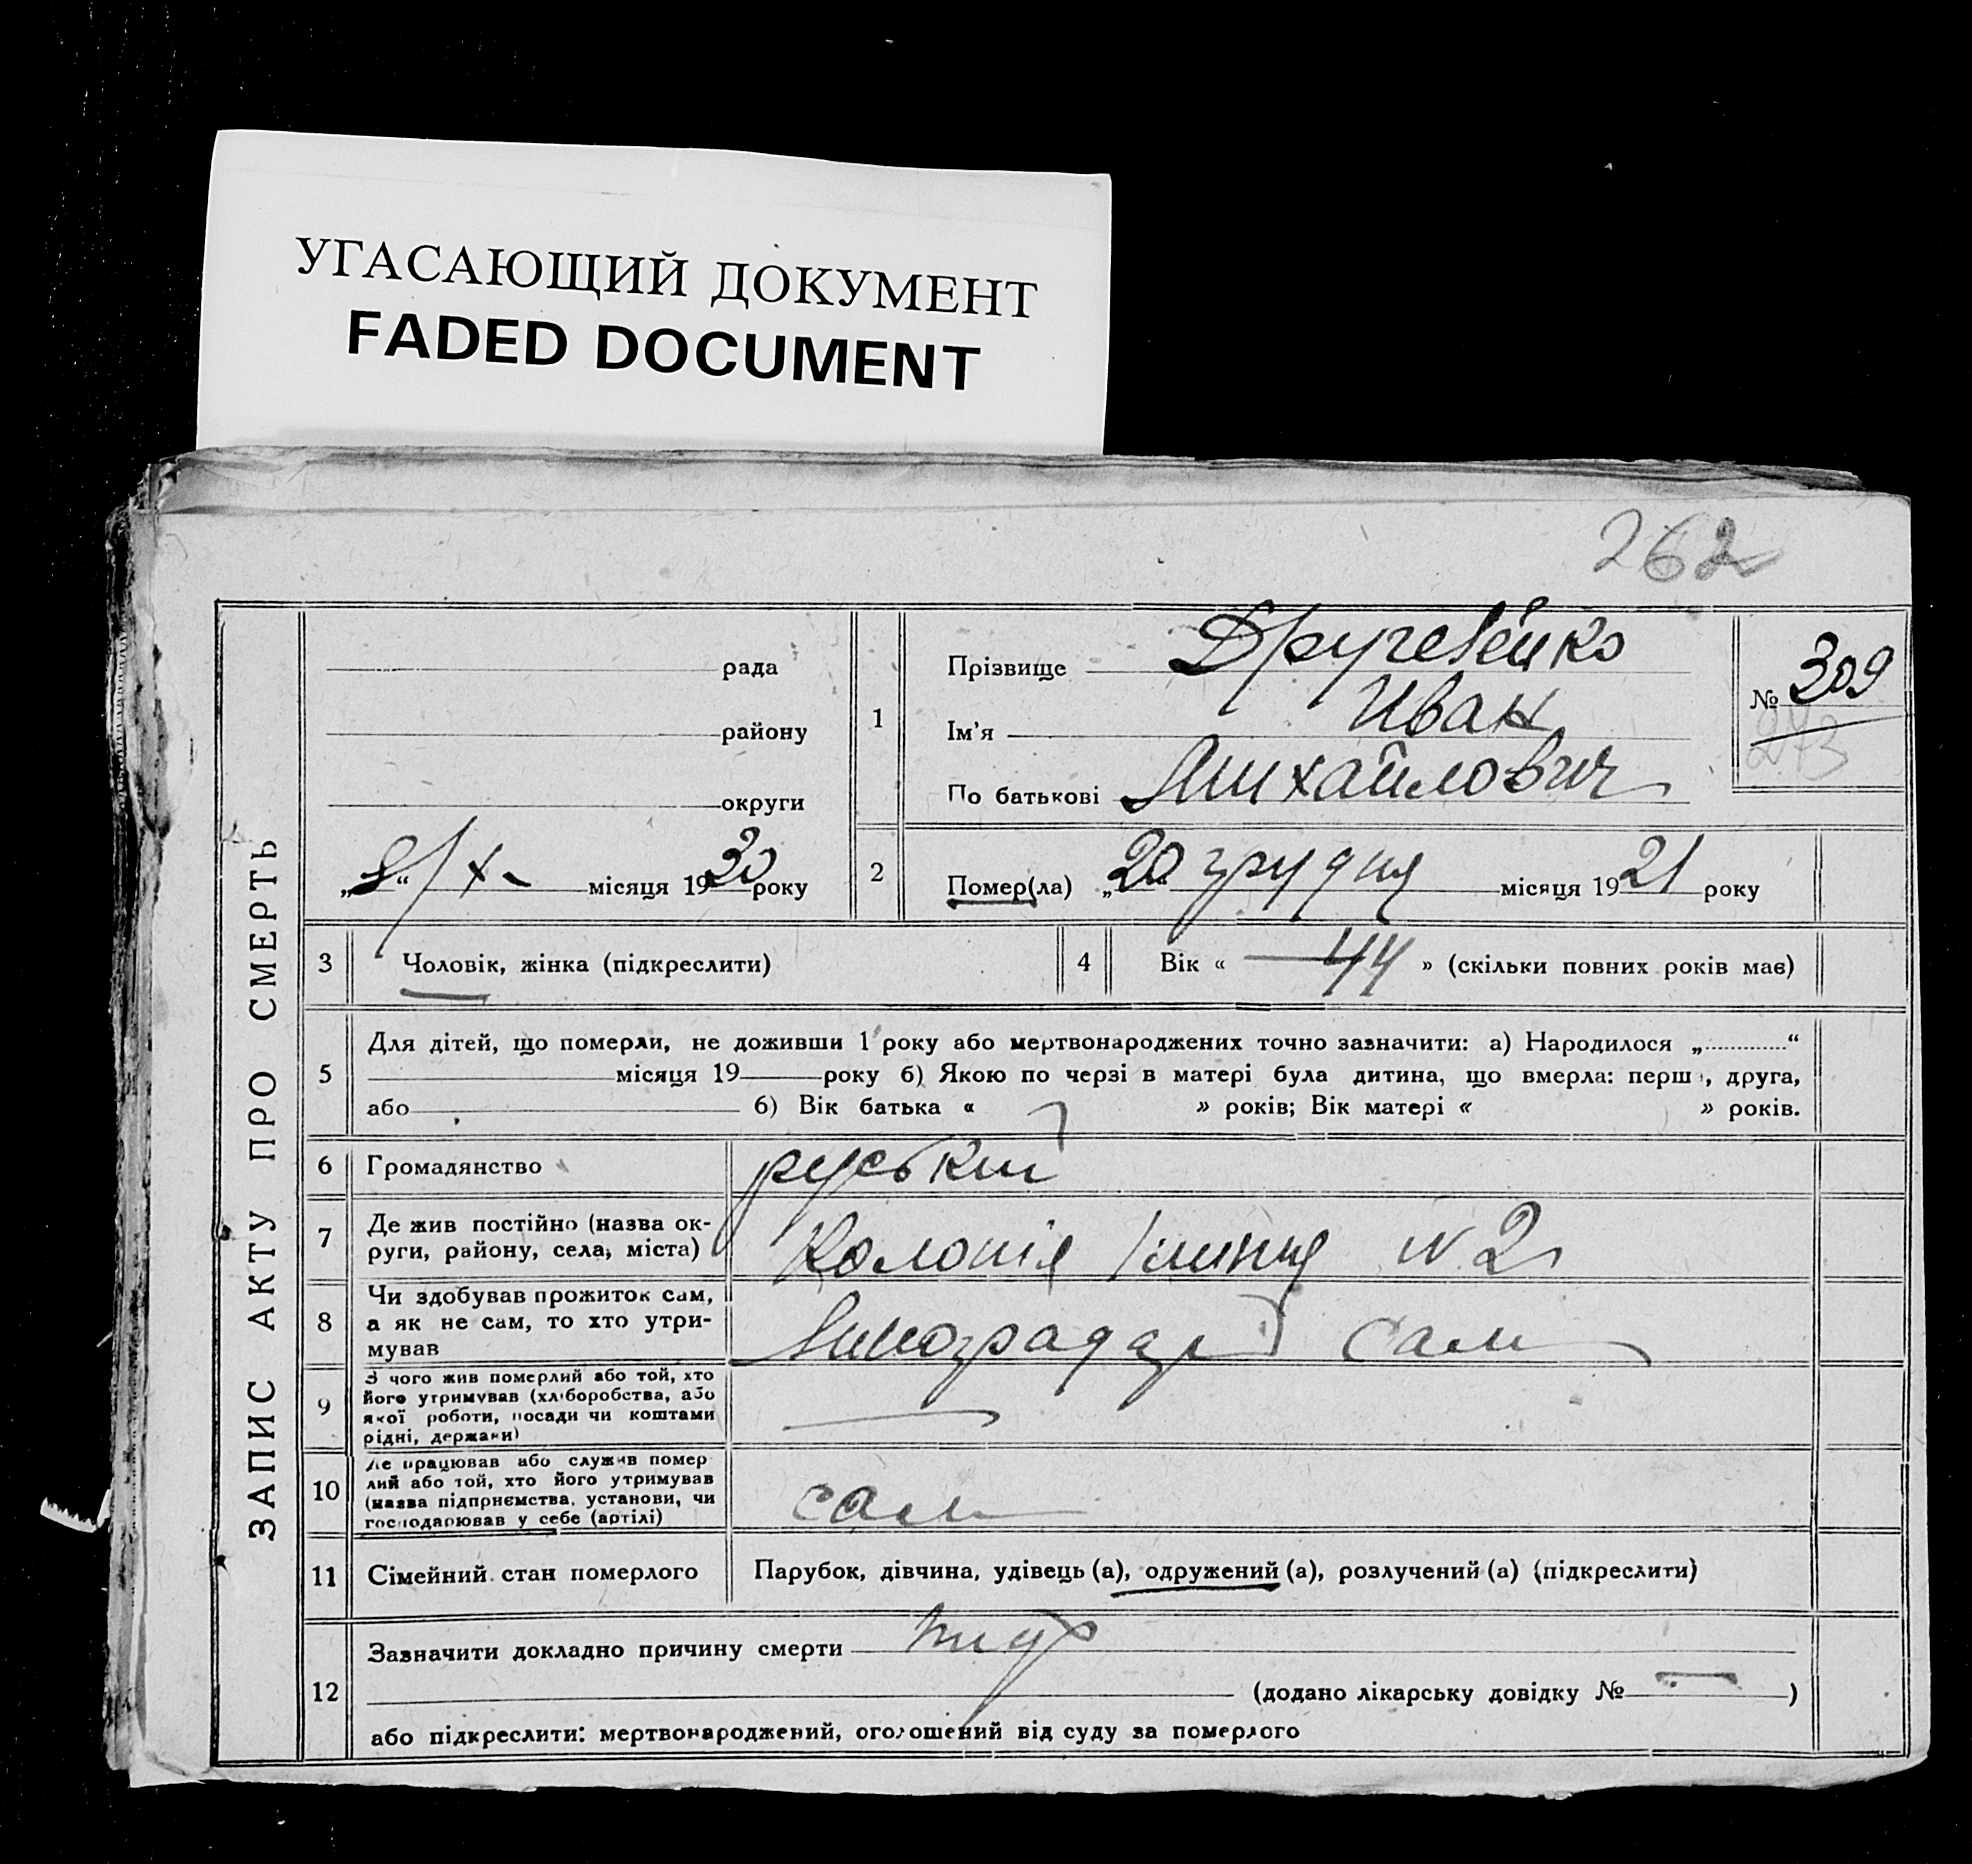 УГАСАЮЩИЙ ДОКУМЕНТ
FADED DOCUMENT
262
ЗАПИС АКТУ ПРО СМЕРТЬ
рада
району
округи
„8“/X- місяця 1930 року
1
Прізвище
Ім'я Иван
По батькові Михайлович
№ 309
273
2
Помер(ла) „20“ грудня місяця 1921 року
3 Чоловік, жінка (підкреслити)
4 Вік « 44 » (скільки повних років має)
5
Для дітей, що померли, не доживши 1 року або мертвонароджених точно зазначити: а) Народилося „ “
місяця 19 року б) Якою по черзі в матері була дитина, що вмерла: перш , друга,
або б) Вік батька « » років; Вік матері « » років.
6 Громадянство руський
7 Де жив постійно (назва ок-
руги, району, села, міста)
Колонія №2
8 Чи здобував прожиток сам,
а як не сам, то хто утри-
мував
Виноградар сам
9 З чого жив померлий або той, хто
його утримував (хліборобства, або
якої роботи, посади чи коштами
рідні, держави)
10 Де працював або служив помер
лий або той, хто його утримував
(назва підприємства, установи, чи
господарював у себе (артілі)
сам
11 Сімейний стан померлого Парубок, дівчина, удівець (а), одружений (а), розлучений (а) (підкреслити)
12
Зазначити докладно причину смерти тиф
(додано лікарську довідку № — )
або підкреслити: мертвонароджений, оголошений від суду за померлого